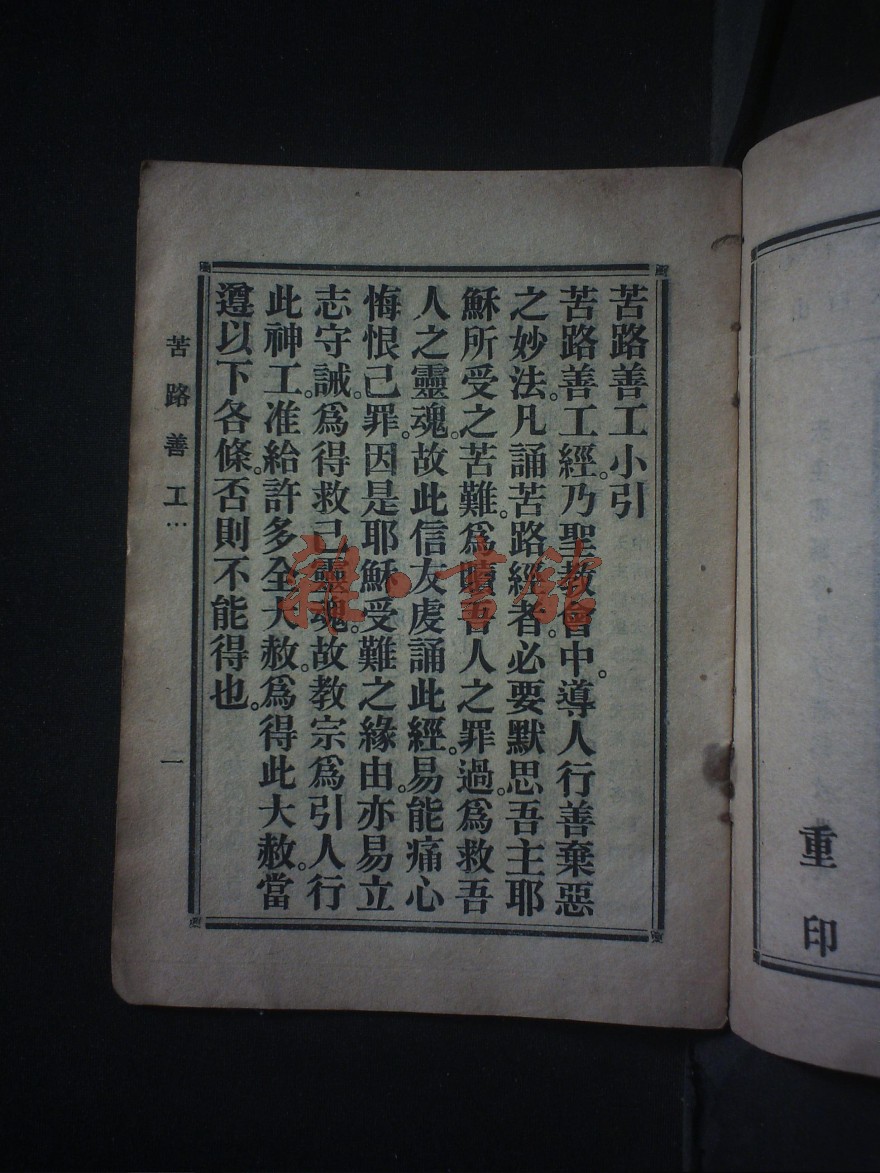 苦路善工小引
苦路善工經。乃聖教會中。導人行善棄惡
之妙法。凡誦苦路經者。必要默思吾主耶
穌所受之苦難。爲贖吾人之罪過。爲救吾
人之靈魂。故此信友虔誦此經。易能痛心
悔恨己罪。因是耶穌受難之緣由。亦易立
志守誡。爲得救己靈魂。故教宗爲引人行
此神工。准給許多全大赦。爲得此大赦。當
遵以下各條。否則不能得也。
苦路善工…
一
重印
雜·書館